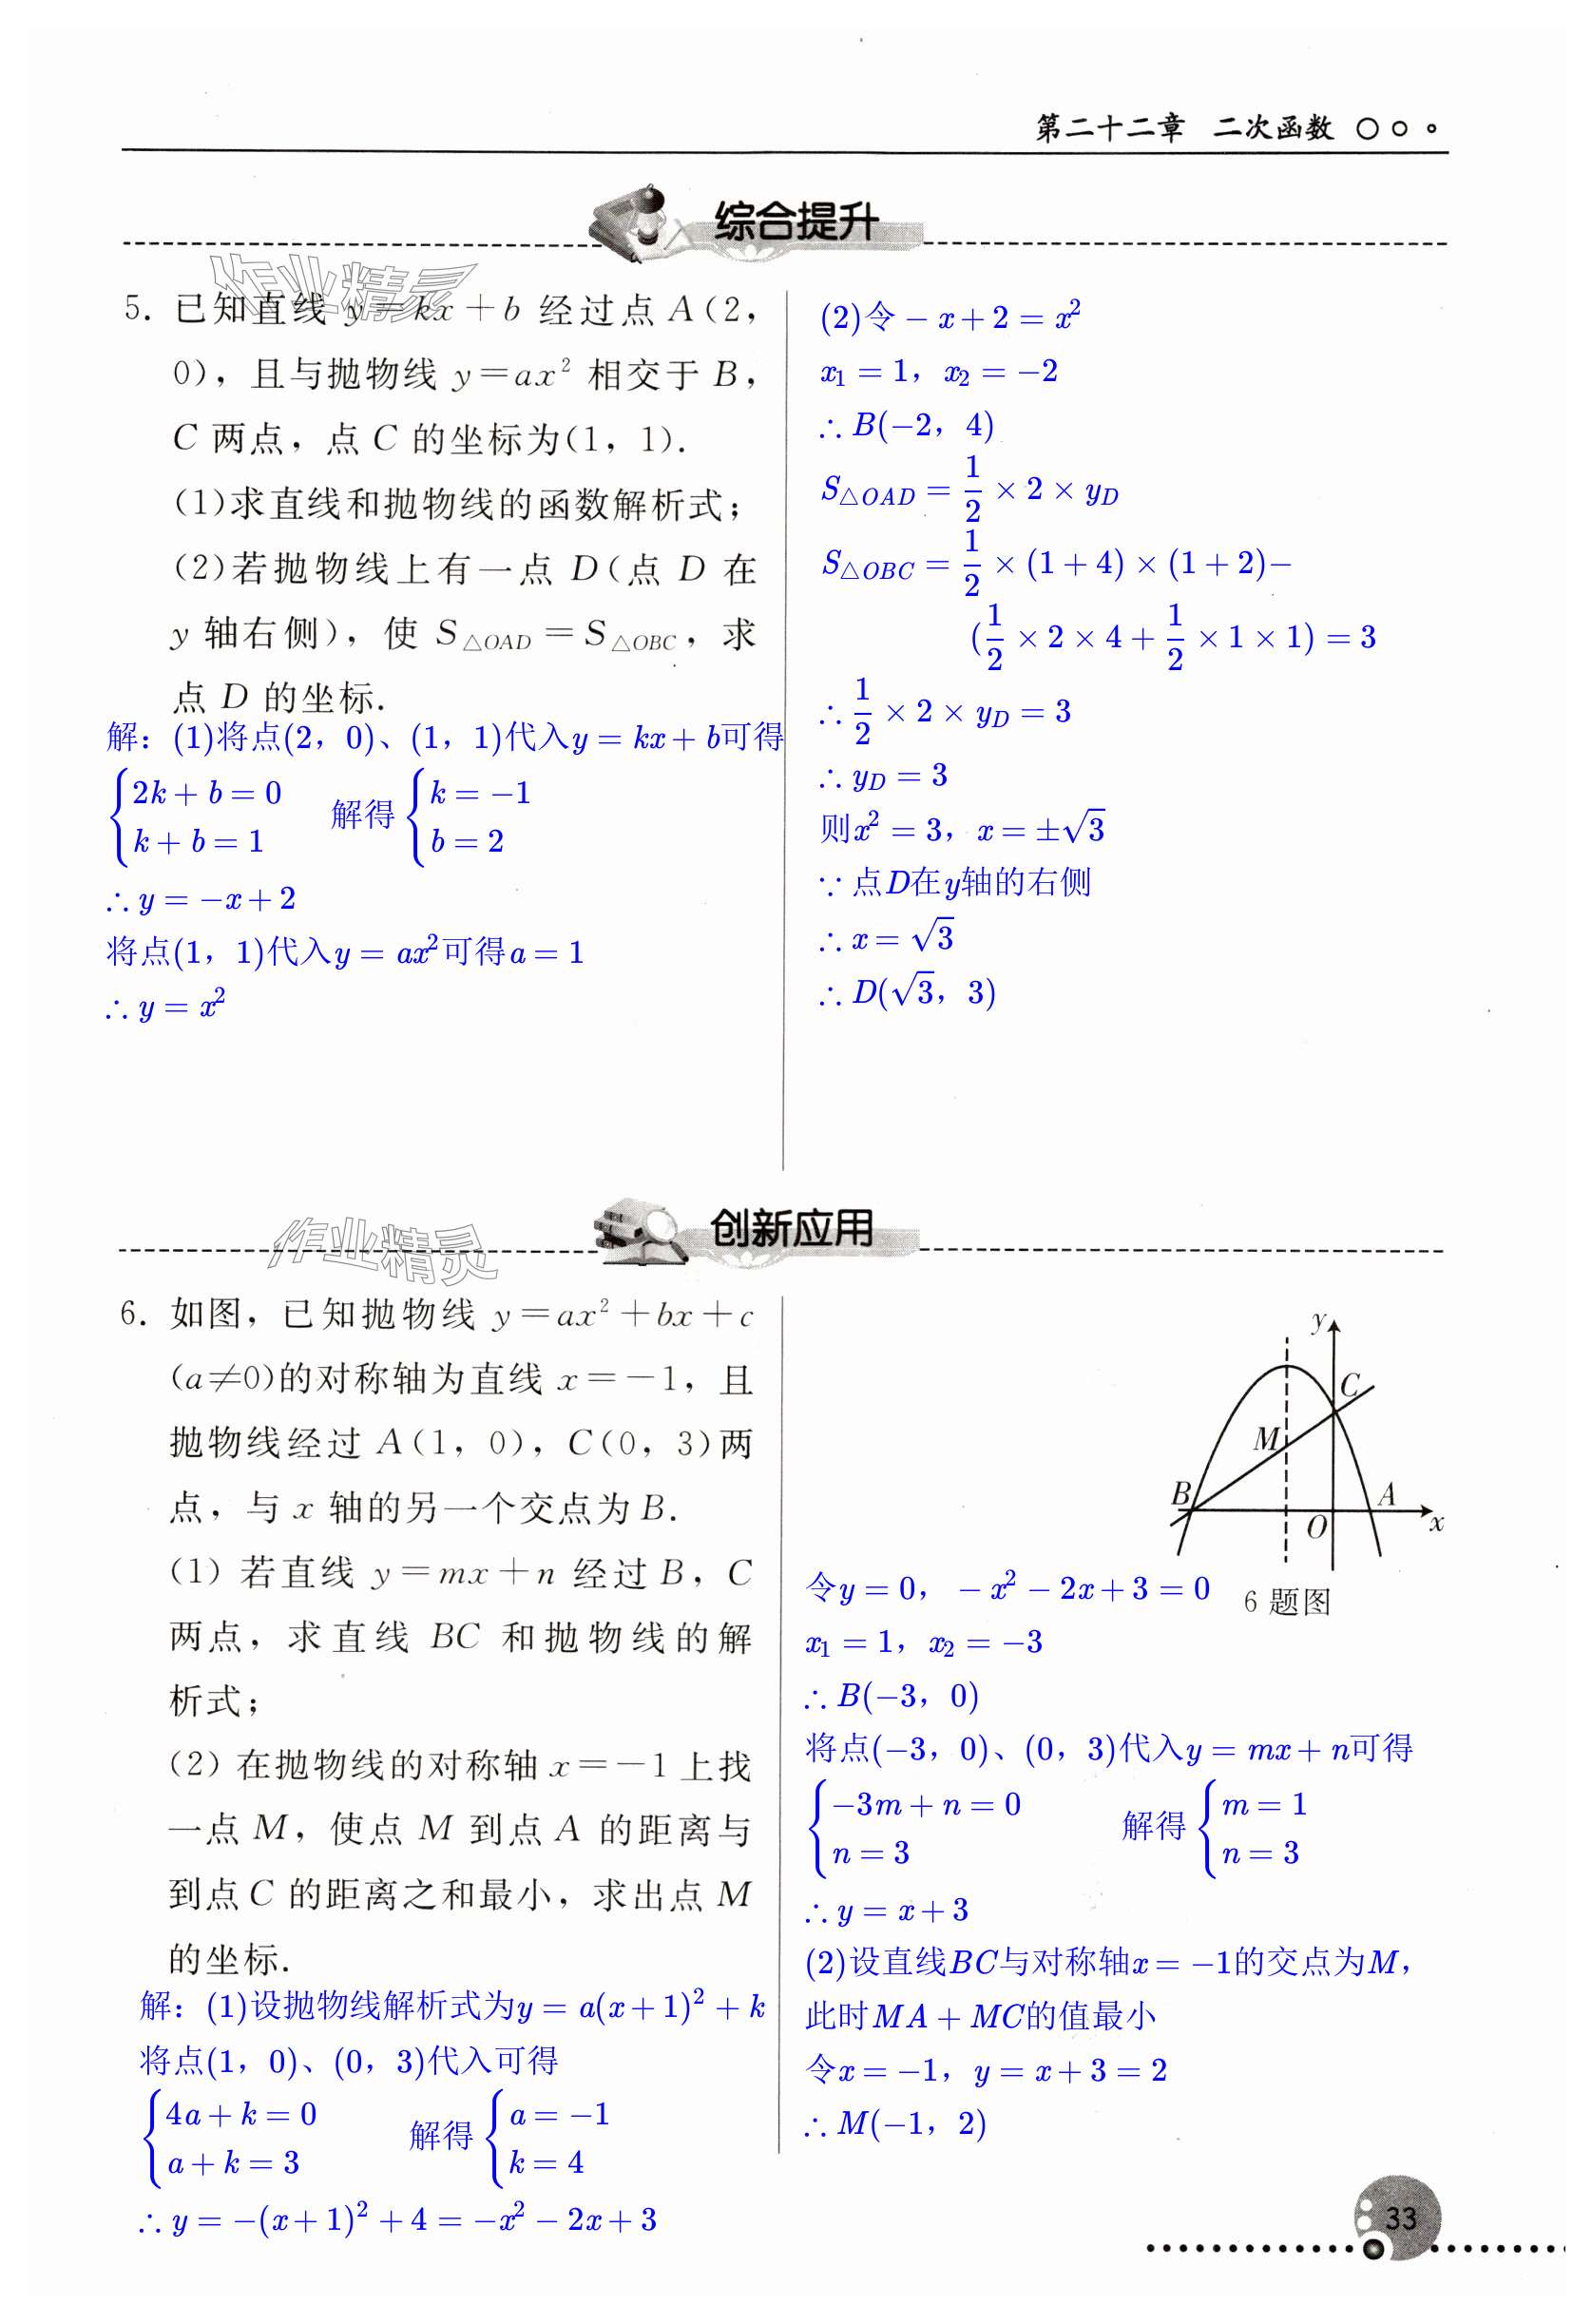 第二十二章 二次函数
综合提升
作业精灵
5. 已知直线 y=kx+b 经过点 A(2,
0), 且与抛物线 y=ax² 相交于 B,
C 两点, 点 C 的坐标为(1, 1).
(1)求直线和抛物线的函数解析式;
(2)若抛物线上有一点 D(点 D 在
y 轴右侧), 使 S△OAD=S△OBC, 求
点 D 的坐标.
解：(1)将点(2，0)、(1，1)代入y=kx+b可得
{2k+b=0
k+b=1 解得 {k=−1
b=2
∴y=−x+2
将点(1，1)代入y=ax²可得a=1
∴y=x²
(2)令−x+2=x²
x₁=1，x₂=−2
∴B(−2，4)
S△OAD=1/2×2×y_D
S△OBC=1/2×(1+4)×(1+2)−
(1/2×2×4+1/2×1×1)=3
∴1/2×2×y_D=3
∴y_D=3
则x²=3，x=±√3
∵点D在y轴的右侧
∴x=√3
∴D(√3，3)
创新应用
作业精灵
6. 如图, 已知抛物线 y=ax²+bx+c
(a≠0)的对称轴为直线 x=−1, 且
抛物线经过 A(1, 0), C(0, 3)两
点, 与 x 轴的另一个交点为B.
(1) 若直线 y=mx+n 经过 B, C
两点, 求直线 BC 和抛物线的解
析式;
(2) 在抛物线的对称轴 x=−1 上找
一点 M, 使点 M 到点 A 的距离与
到点 C 的距离之和最小, 求出点 M
的坐标.
解：(1)设抛物线解析式为y=a(x+1)²+k
将点(1，0)、(0，3)代入可得
{4a+k=0
a+k=3 解得 {a=−1
k=4
∴y=−(x+1)²+4=−x²−2x+3
y
C
M
B
A
O
x
6 题图
令y=0，−x²−2x+3=0
x₁=1，x₂=−3
∴B(−3，0)
将点(−3，0)、(0，3)代入y=mx+n可得
{−3m+n=0
n=3 解得 {m=1
n=3
∴y=x+3
(2)设直线BC与对称轴x=−1的交点为M，
此时MA+MC的值最小
令x=−1，y=x+3=2
∴M(−1，2)
33